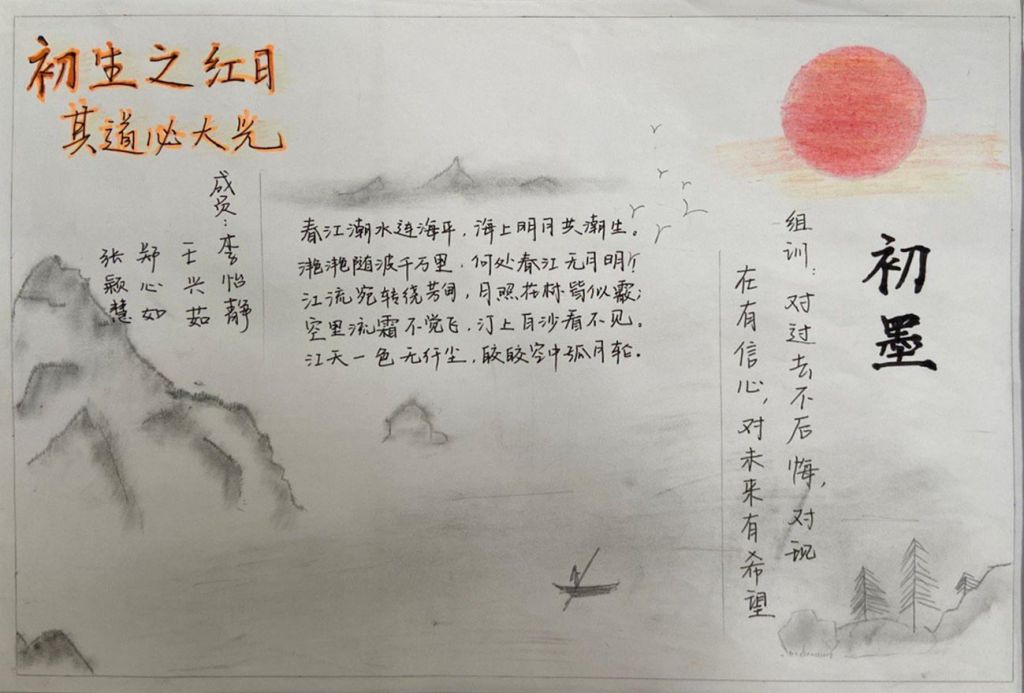 初生之红日
其道必大光
成员：李怡静
王兴茹
郑心如
张颖慧
春江潮水连海平，海上明月共潮生。
滟滟随波千万里，何处春江无月明？
江流宛转绕芳甸，月照花林皆似霰；
空里流霜不觉飞，汀上白沙看不见。
江天一色无纤尘，皎皎空中孤月轮。
初墨
组训：对过去不后悔，对现
在有信心，对未来有希望